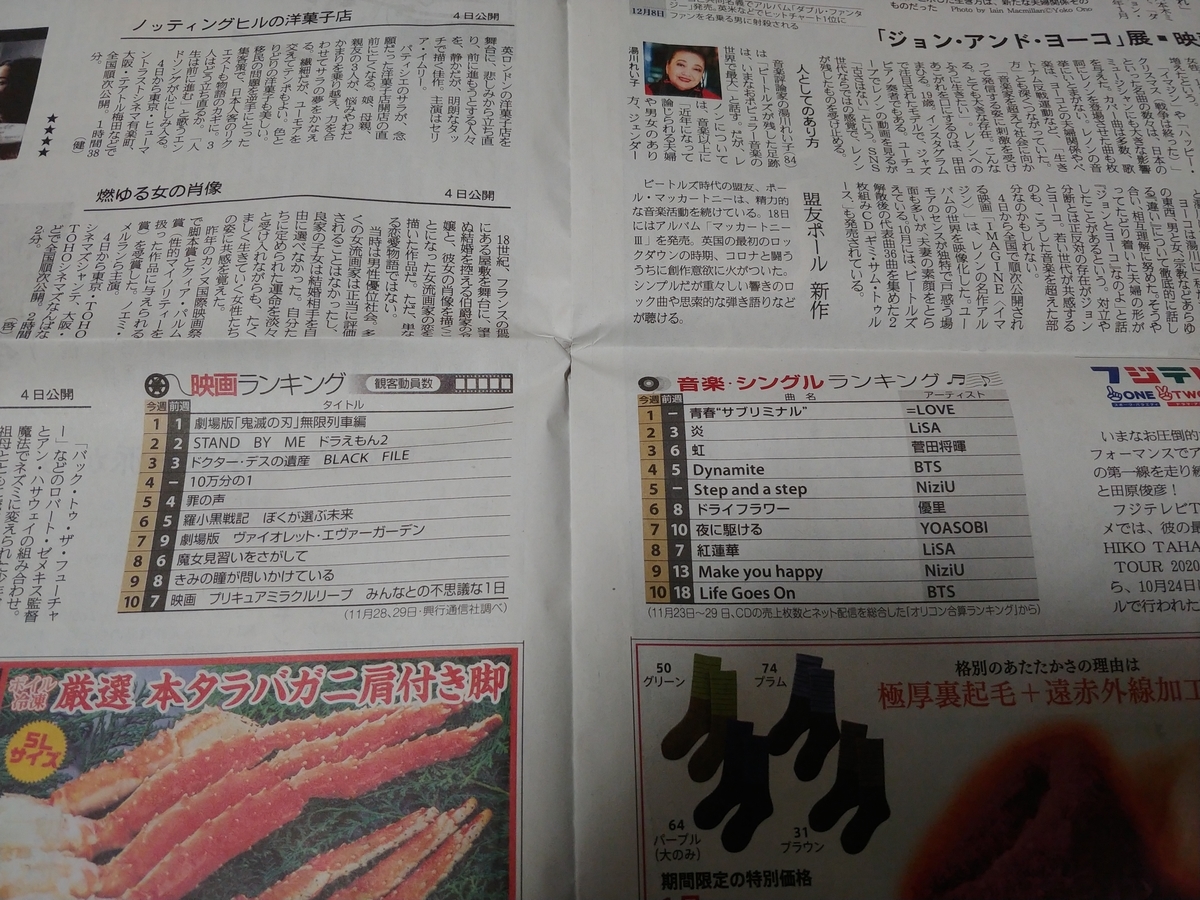 ノッティングヒルの洋菓子店
4日公開
英ロンドンの洋菓子店を
舞台に、悲しみから立ち直
り、前に進もうとする人々
を、静かだが、明朗なタッ
チで描く佳作。主演はセリ
ア・イムリー。
パティシエのサラが、念
願だった洋菓子店開店の直
前に亡くなる。娘、母親、
親友の3人が、悩みやわだ
かまりを乗り越え、力を合
わせてサラの夢をかなえ
る。繊細だが、ユーモアを
交えてテンポもよい。色と
りどりの洋菓子も美しい。
移民の問題を逆手にとった
集客策で、日本人客のリク
エストも物語のカギに。3
人はどう立ち直るか。「人
生は前に進む」と歌うエン
ドソングが心にしみ入る。
4日から東京・ヒューマ
ントラストシネマ有楽町、
大阪・テアトル梅田などで
全国順次公開。1時間38
分。
(健)
★★★★
燃ゆる女の肖像
4日公開
18世紀、フランスの孤
にある屋敷を舞台に、望
ぬ結婚を控える伯爵家の
嬢と、彼女の肖像を描こ
とになった女流画家の恋
描いた作品だ。ただ、単な
る恋愛物語ではない。
当時は男性優位社会。多
くの女流画家は正当に評価
されることはなかったし、
良家の子女は結婚相手を自
由に選べなかった。自分た
ちに定められた運命を淡々
と受け入れながらも、たく
ましく生きていく女性たち
の姿に共感を覚えた。
昨年のカンヌ国際映画祭
で脚本賞とクィア・パルム
賞(性的マイノリティーを
扱った作品に与えられる
賞)を受賞した。ノエミ・
メルランら主演。
4日から東京・TOHO
シネマズシャンテ、大阪・
TOHOシネマズなんばな
どで全国順次公開。2時間
2分。
(啓)
12月8日
と共同名義でアルバム「ダブル・ファンタ
ジー」発売。英米などでヒットチャート1位に
ファンを名乗る男に射殺される
ものだった
Photo by Iain Macmillan©Yoko Ono
「ジョン・アンド・ヨーコ」展・映
湯川れい子
人としてのあり方
音楽評論家の湯川れい子(84)
は、「ビートルズが残した足跡
は、いまなおポピュラー音楽の
世界で最大」と話す。だが、レ
ノンについて
は、音楽以上に
「近年になって
論じられる夫婦
や男女のあり
方、ジェンダー
盟友ポール 新作
ビートルズ時代の盟友、ポー
ル・マッカートニーは、精力的
な音楽活動を続けている。18日
にはアルバム「マッカートニー
Ⅲ」を発売。英国の最初のロッ
クダウンの時期、コロナと闘う
うちに創作意欲に火がついた。
シンプルだが重々しい響きのロ
ック曲や思索的な弾き語りなど
が聴ける。
4日公開
「バック・トゥ・ザ・フューチャ
ー」などのロバート・ゼメキス監督
とアン・ハサウェイの組み合わせ。
魔法でネズミに変えられた少年
映画ランキング 観客動員数
今週 前週 タイトル
1 1 劇場版「鬼滅の刃」無限列車編
2 2 STAND BY ME ドラえもん2
3 3 ドクター・デスの遺産 BLACK FILE
4 − 10万分の1
5 4 罪の声
6 5 羅小黒戦記 ぼくが選ぶ未来
7 9 劇場版 ヴァイオレット・エヴァーガーデン
8 6 魔女見習いをさがして
9 8 きみの瞳が問いかけている
10 7 映画 プリキュアミラクルリープ みんなとの不思議な1日
(11月28、29日・興行通信社調べ)
音楽・シングルランキング
今週 前週 曲名 アーティスト
1 − 青春“サブリミナル” =LOVE
2 3 炎 LiSA
3 6 虹 菅田将暉
4 5 Dynamite BTS
5 − Step and a step NiziU
6 8 ドライフラワー 優里
7 10 夜に駆ける YOASOBI
8 7 紅蓮華 LiSA
9 13 Make you happy NiziU
10 18 Life Goes On BTS
(11月23日〜29日、CDの売上枚数とネット配信を総合した「オリコン合算ランキング」から)
フジテレ
ONE TWO
いまなお圧倒的
フォーマンスでア
の第一線を走り続
と田原俊彦!
フジテレビT
メでは、彼の最
HIKO TAHA
TOUR 2020
ら、10月24日
ルで行われた
ボイル冷凍
厳選 本タラバガニ肩付き脚
5Lサイズ
50
グリーン
74
プラム
64
パープル
(大のみ)
31
ブラウン
格別のあたたかさの理由は
極厚裏起毛+遠赤外線加工
期間限定の特別価格